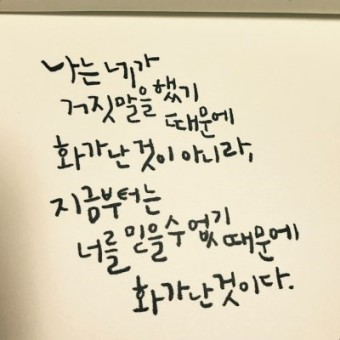 나는 네가
거짓말을 했기
때문에
화가난 것이 아니라,
지금부터는
너를 믿을수 없기
때문에
화가난것이다.